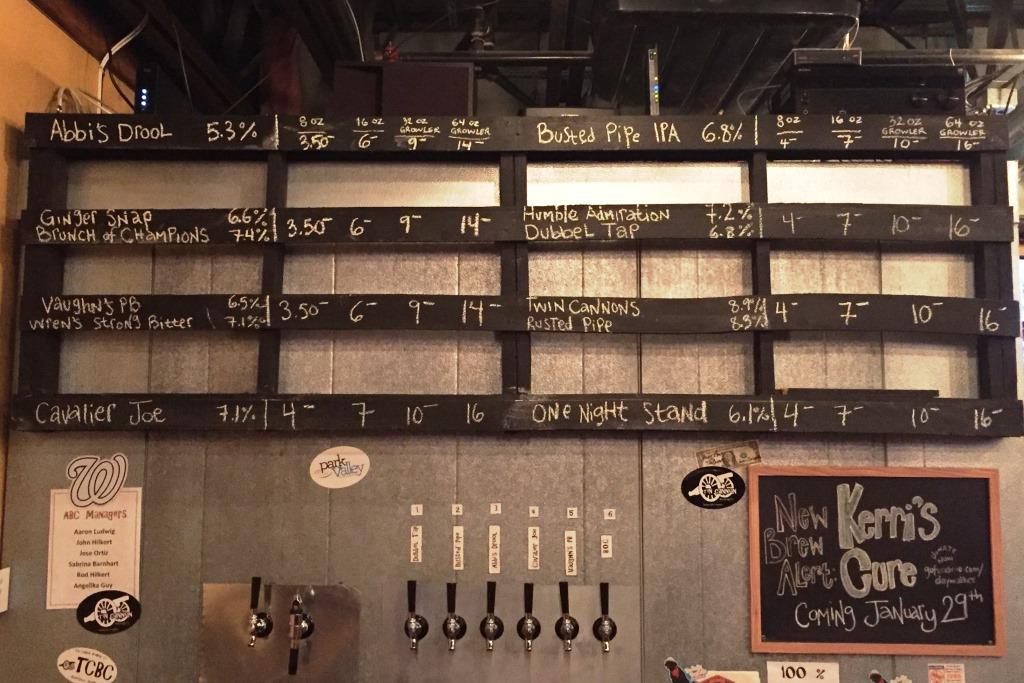 Abbi's Drool 5.3% 8 oz 3.50 16 oz 6- 32 oz Growler 9- 64 oz Growler 14-
Busted Pipe IPA 6.8% 8 oz 4- 16 oz 7- 32 oz Growler 10- 64 oz Growler 16-
Ginger Snap 6.6%
Brunch of Champions 7.4%
3.50- 6- 9- 14-
Humble Admiration 7.2%
Dubbel Tap 6.8%
4- 7- 10- 16-
Vaughn's PB 6.5%
Wren's Strong Bitter 7.1%
3.50- 6- 9- 14-
Twin Cannons 8.9%
Rusted Pipe 8.3%
4- 7- 10- 16-
Cavalier Joe 7.1% 4- 7 10- 16
One Night Stand 6.1% 4- 7- 10- 16-
W
ABC Managers
Aaron Ludwig
John Hilkert
Jose Ortiz
Sabrina Barnhart
Rod Hilkert
Angelika Guy
park Valley
1 2 3 4 5 6
Dubbel Tap
Busted Pipe
Abbi's Drool
Cavalier Joe
Vaughn's PB
BOC
TIN CANNON
New Brew Alert:
Kerri's Cure
Donate Now
Coming January 29th
TCBC
100 %